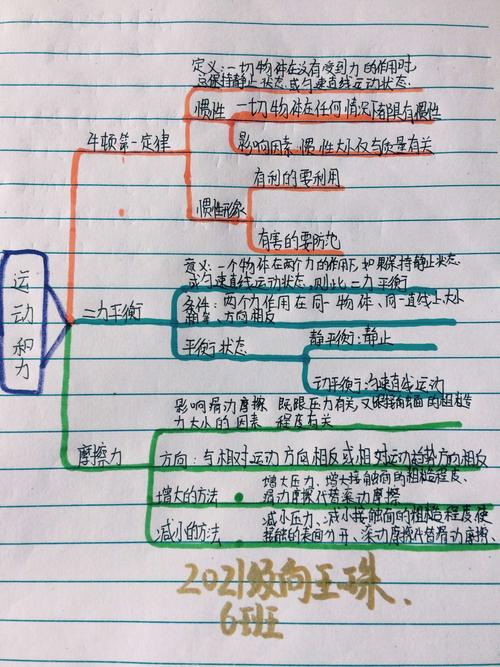 定义:一切物体在没有受到力的作用时,
总保持静止状态或匀速直线运动状态.
惯性 一切物体在任何情况下都具有惯性
牛顿第一定律
影响因素:惯性大小仅与质量有关
有利的要利用
惯性现象
有害的要防范
定义:一个物体在两个力的作用下,如果保持静止状态
或匀速直线运动状态,则此二力平衡
运动和力
二力平衡
条件:两个力作用在同一物体、同一直线上大小
相等、方向相反
平衡状态
静平衡:静止
动平衡:匀速直线运动
影响滑动摩擦 既跟压力有关,又跟接触面的粗糙
力大小的因素 程度有关
摩擦力
方向:与相对运动方向相反或相对运动趋势方向相反
增大的方法
增大压力、增大接触面的粗糙程度、
滑动摩擦代替滚动摩擦
减小的方法
减小压力、减小接触面的粗糙程度使
接触的表面分开、滚动摩擦代替滑动摩擦、
2021级向玉珠、
6班